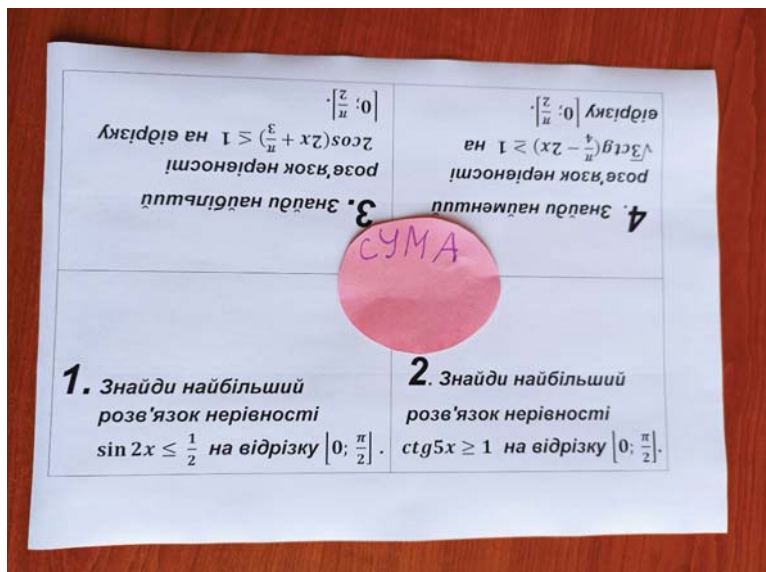 СУМА
1. Знайди найбільший
розв'язок нерівності
sin 2x ≤ 1/2 на відрізку [0; π/2].
2. Знайди найбільший
розв'язок нерівності
ctg5x ≥ 1 на відрізку [0; π/2].
3. Знайди найбільший
розв'язок нерівності
2cos(2x + π/3) ≤ 1 на відрізку
[0; π/2].
4. Знайди найменший
розв'язок нерівності
√3ctg(π/4 − 2x) ≥ 1 на
відрізку [0; π/2].